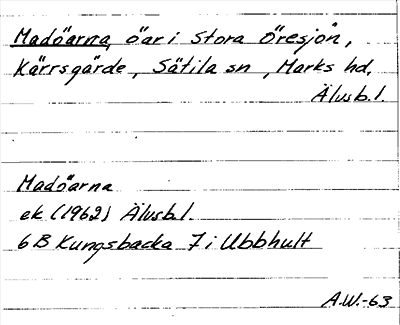 Madöarna, öar i Stora Öresjön,
Kärrsgärde, Sätila sn, Marks hd.
Älvsb.l.
Madöarna
ek (1962) Älvsb.l.
6B Kungsbacka 7i Ubbhult
A.W.-63